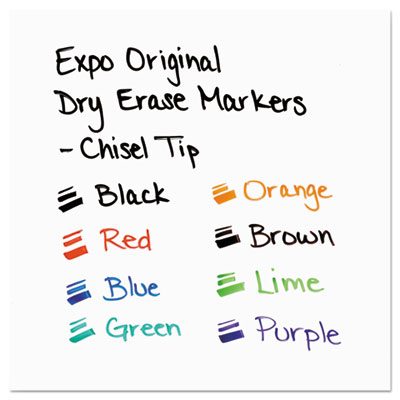 Expo Original
Dry Erase Markers
- Chisel Tip
Black
Red
Blue
Green
Orange
Brown
Lime
Purple